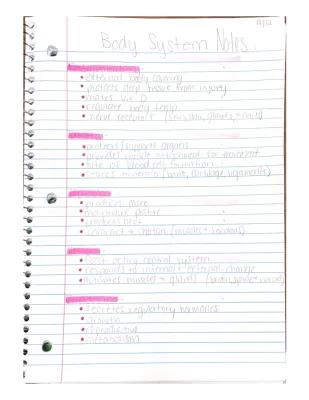 Body System Notes
• external body covering
• protects deep tissue from injury
• makes Vit D
• regulate body temp
• nerve receptors (skin, hair, glands, + nails)
• protects/supports organs
• provides muscle attachment for movement
• site of blood cell formation
• stores minerals (bone, cartilage, ligaments)
• produces
• maintains posture
• produces heat
• (muscles + tendons)
• fast acting control system
• responds to internal + external change
• activates muscles + glands (brain, spine + nerves)
• secretes regulatory hormones
• growth
• reproductive
• metabolism